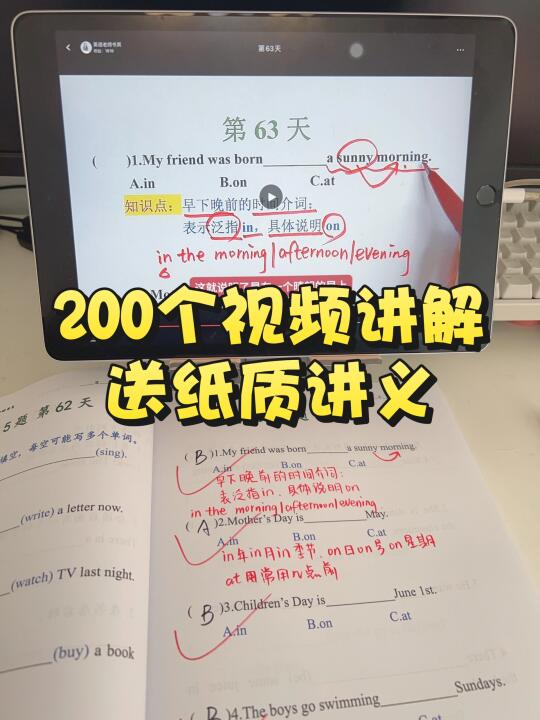 英语老师书英
第63天
第 63 天
( )1.My friend was born________a sunny morning.
A.in B.on C.at
知识点：早下晚前的时间介词：
表示泛指 in，具体说明 on
in the morning/afternoon/evening
这就说明了是在一个晴朗的早上
200个视频讲解
送纸质讲义
5 题 第 62 天
填空，每空可能写多个单词。
(sing).
(write) a letter now.
(watch) TV last night.
(buy) a book
( B )1.My friend was born________a sunny morning.
A.in B.on C.at
早下晚前的时间介词：
表泛指in，具体说明on
in the morning/afternoon/evening
( A )2.Mother's Day is__________May.
A.in B.on C.at
in年in月in季节，on日on号on星期
at用常用几点前
( B )3.Children's Day is__________June 1st.
A.in B.on C.at
( B )4.The boys go swimming__________Sundays.